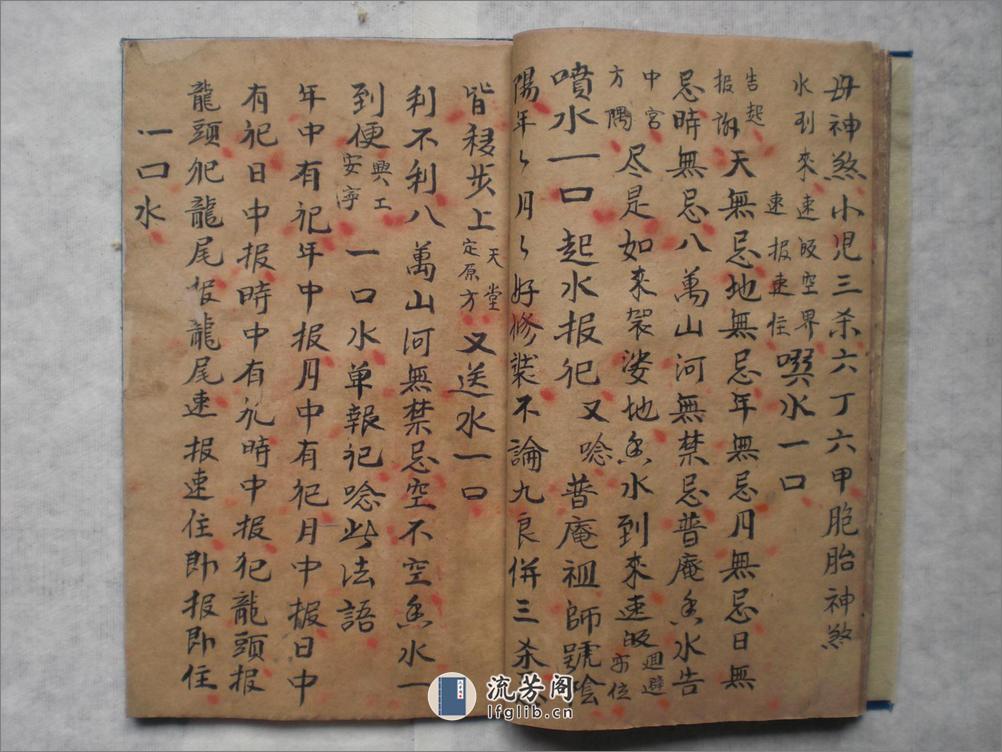 毋神煞小児三杀六丁六甲胞胎神煞
水到來速皈空界 速报速住 噀水一口
告起报谢天無忌地無忌年無忌月無忌日無
忌時無忌八萬山河無禁忌普庵香水告
中宮方隅 尽是如来袈娑地香水到來速皈迴避方位
噴水一口 起水报犯 又唸 普庵祖師號陰
陽年々月々好修裝不論九良併三杀
皆移步上天堂定原方 又送水一口
利不利八萬山河無禁忌空不空香水一
到便興工安寕 一口水单報犯唸此法語
年中有犯年中报月中有犯月中报日中
有犯日中报時中有犯時中报犯龍頭报
龍頭犯龍尾报龍尾速报速住即报即住
一口水
流芳阁
lfglib.cn